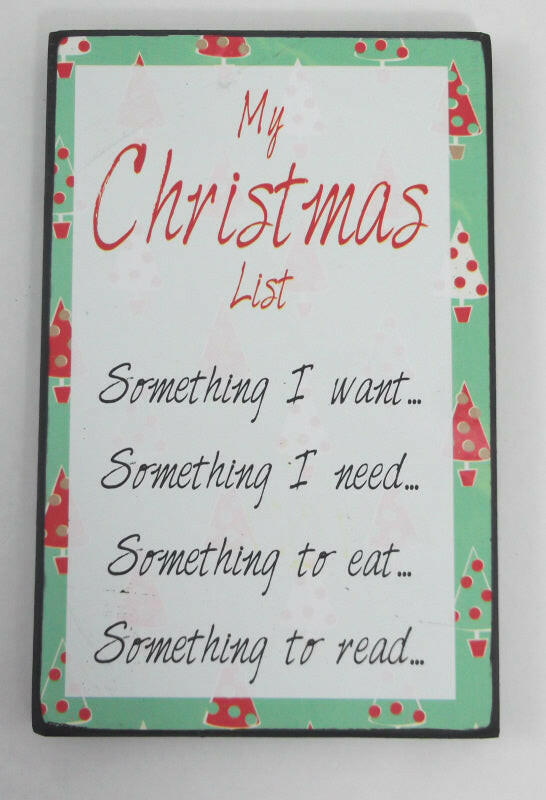 My
Christmas
List
Something I want...
Something I need...
Something to eat...
Something to read...